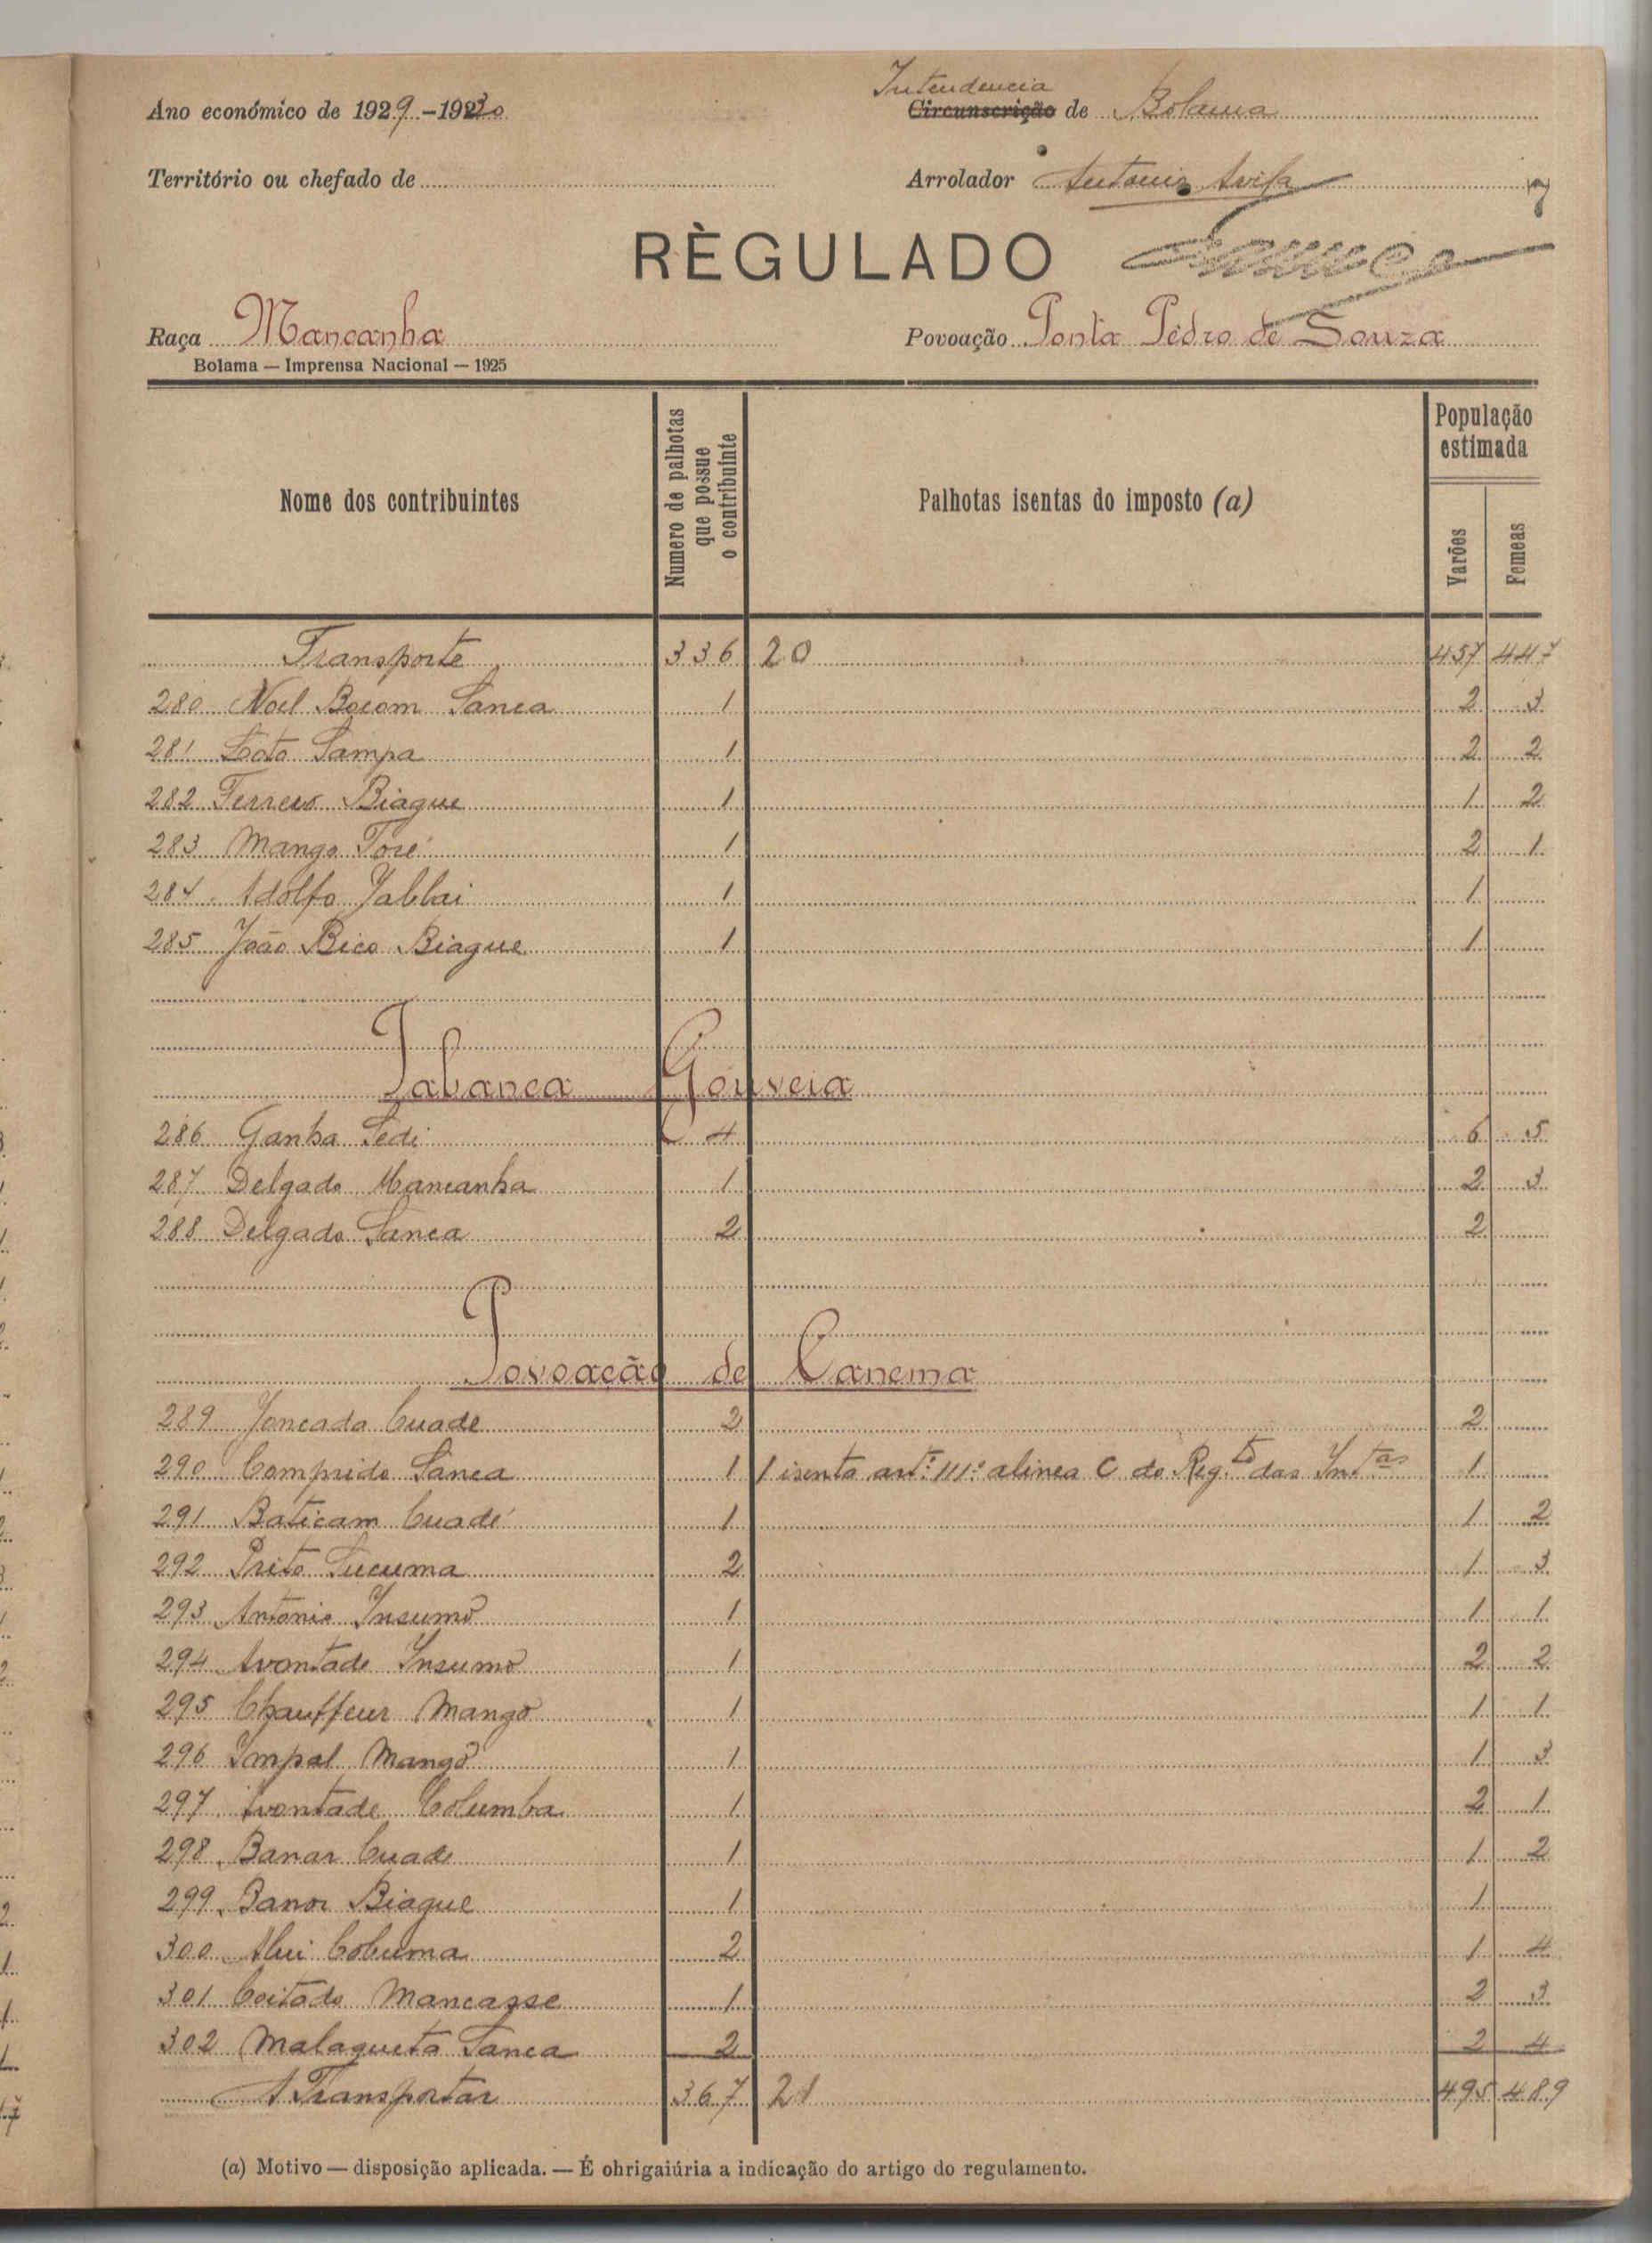 Intendencia
Ano económico de 1929-1930 Circunscrição de Bolama
Território ou chefado de Arrolador Antonio
RÈGULADO
Raça Mancanha Povoação Ponta Pedro de Souza
Bolama — Imprensa Nacional — 1925
Nome dos contribuintes
Numero de palhotas
que possue
o contribuinte
Palhotas isentas do imposto (a)
População
estimada
Varões
Femeas
Transporte 336 20 457 447
280 Noel Bocom Sanca 1 2 3
281 Soto Sampa 1 2 2
282 Ferreiro Biague 1 1 2
283 Mango Toré 1 2 1
284 Adolfo 1 1
285 João Bico Biague 1 1
Tabanca Gouveia
286 Ganha Sedi 4 6 5
287 Delgado Mancanha 1 2 3
288 Delgado Sanca 2 2
Povoação de Canema
289 Joncada Cuade 2 2
290 Comprido Sanca 1 1 isento art.º 111.º alinea C do Reg.to das In.tas 1
291 Baticam Cuadé 1 1 2
292 Prito Sucuma 2 1 3
293 Antonio Insumó 1 1 1
294 Avontade Insumó 1 2 2
295 Chauffeur Mangó 1 1 1
296 Impal Mangó 1 1 3
297 Avontade Columba 1 2 1
298 Banar Cuade 1 1 2
299 Banor Biague 1 1
300 Alui Columa 2 1 4
301 Coitado Mancasse 1 2 3
302 Malagueta Sanca 2 2 4
A Transportar 367 21 495 489
(a) Motivo — disposição aplicada. — É obrigaiúria a indicação do artigo do regulamento.